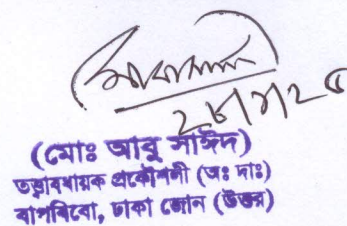 ২৮/৭/২৫
(মোঃ আবু সাঈদ)
তত্ত্বাবধায়ক প্রকৌশলী (অঃ দাঃ)
বাপবিবো, ঢাকা জোন (উত্তর)